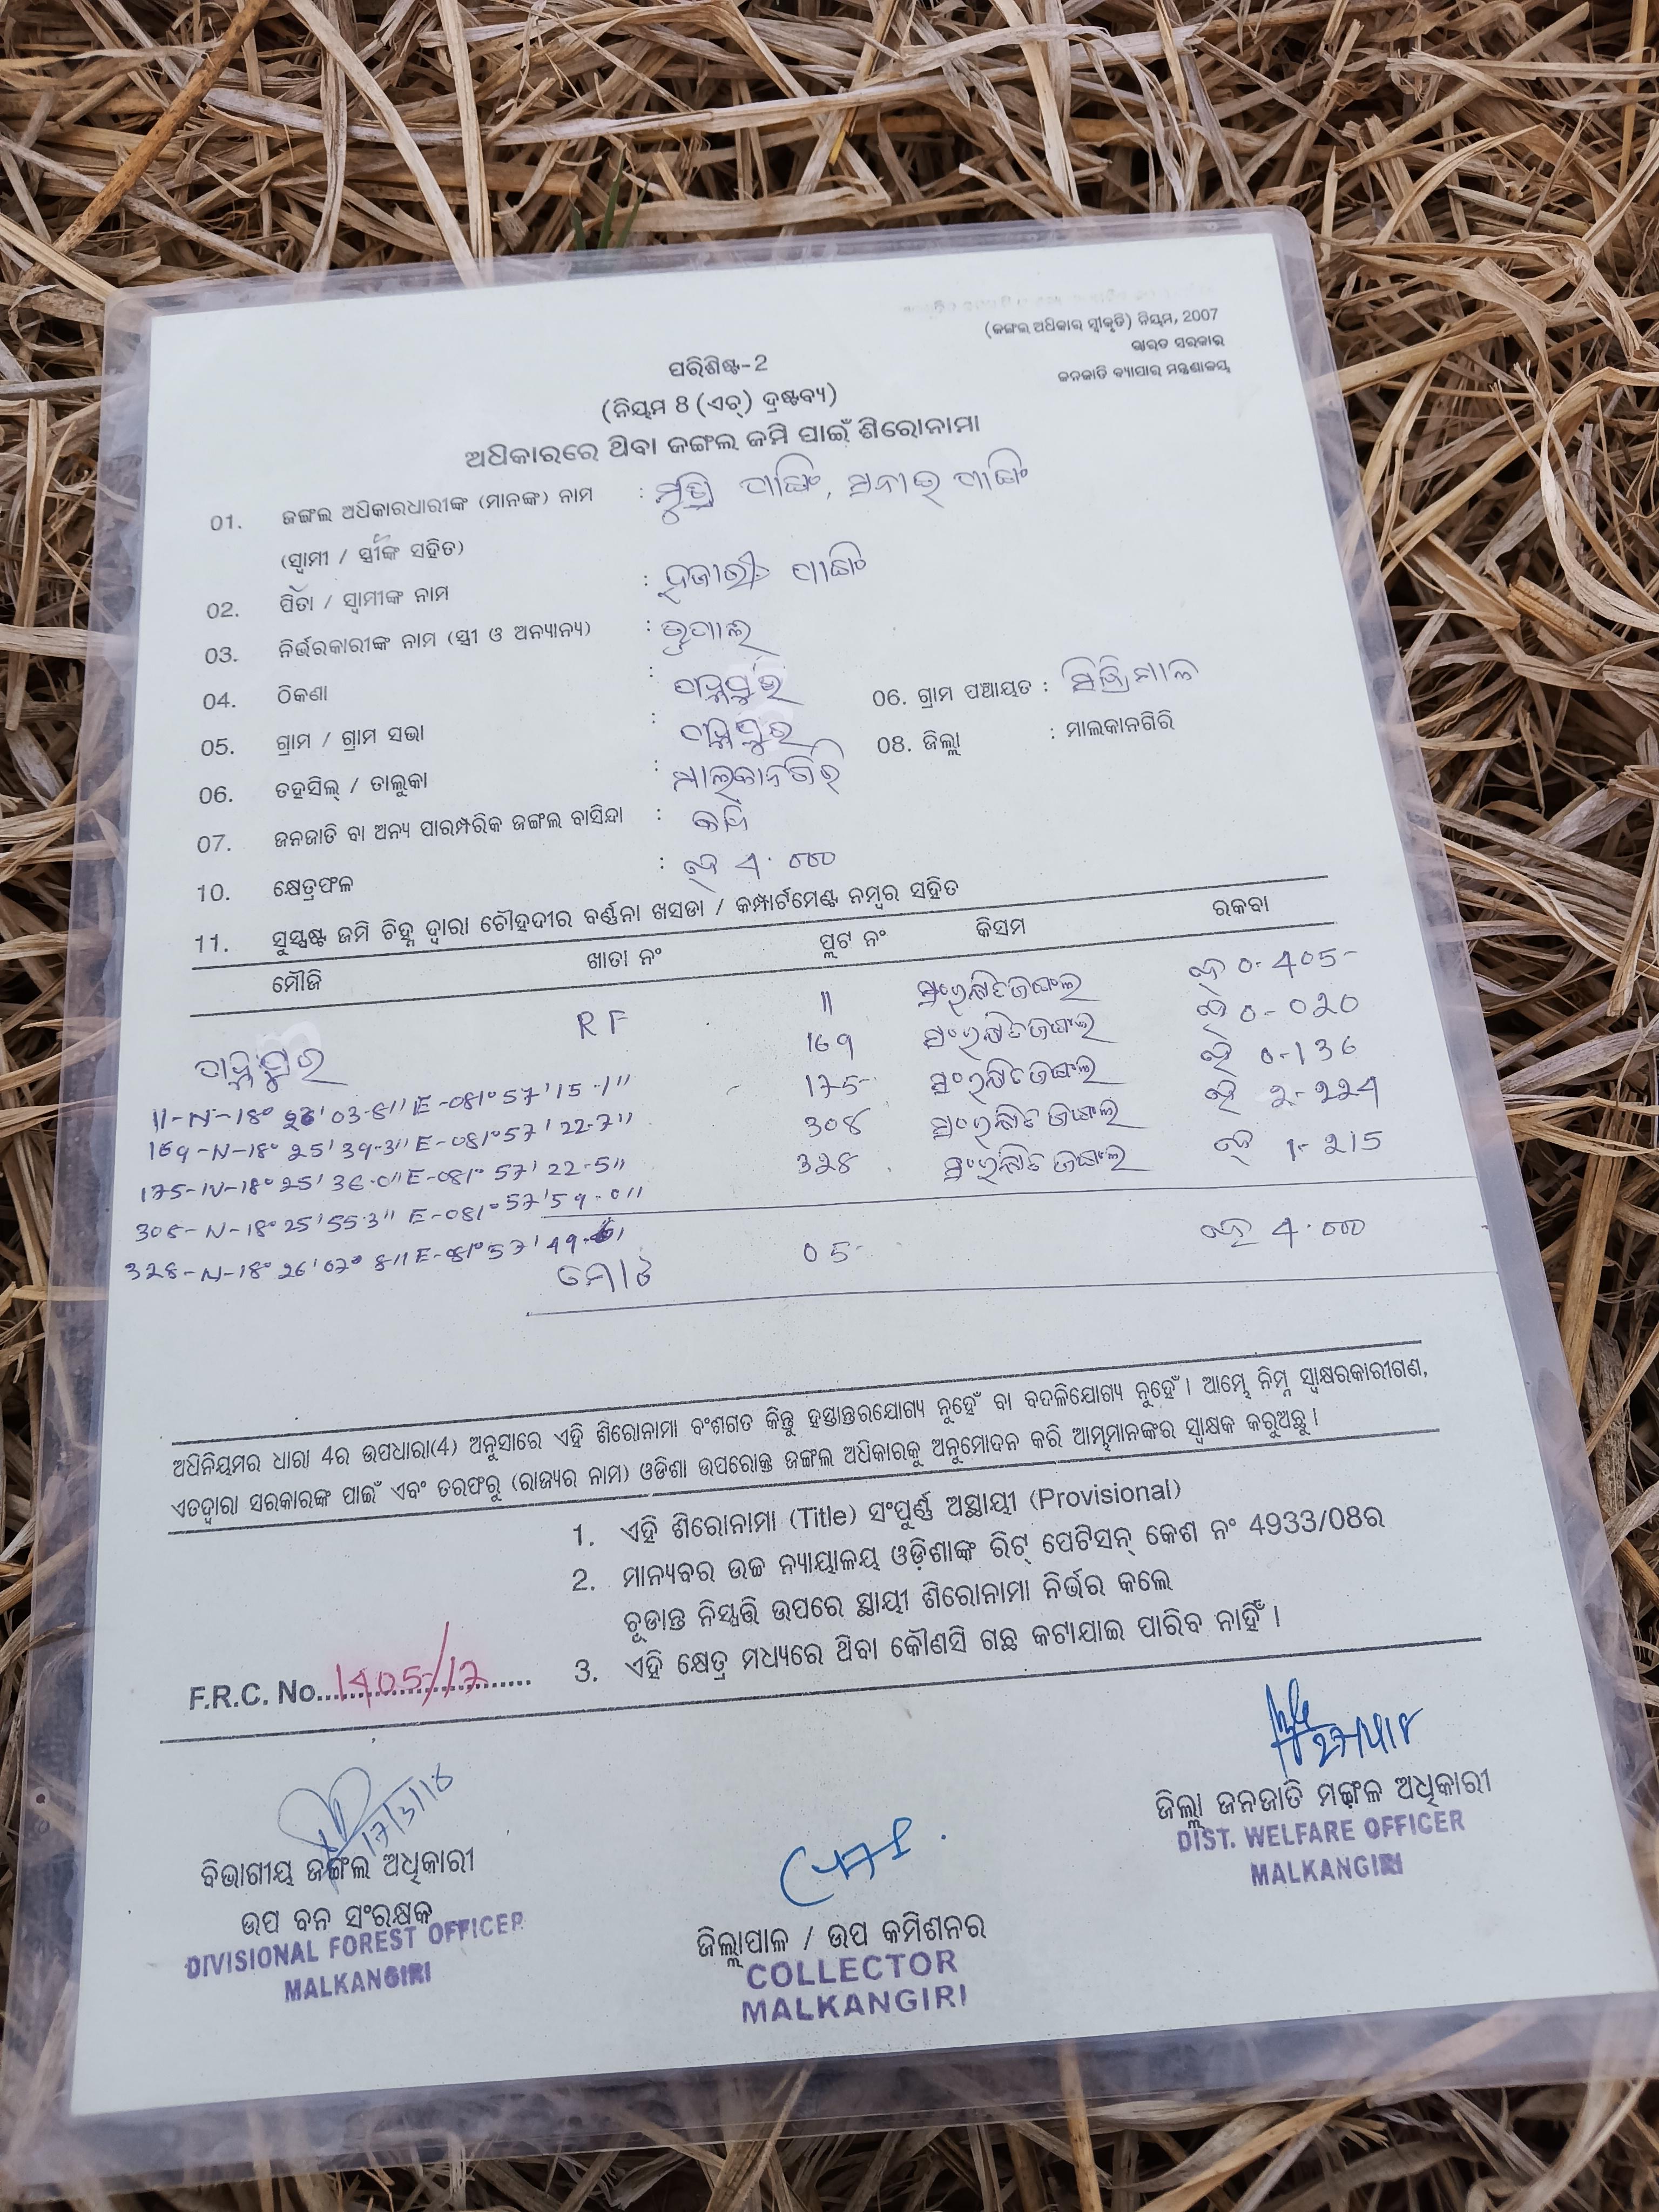 (ଜଙ୍ଗଲ ଅଧିକାର ସ୍ୱୀକୃତି) ନିୟମ, 2007
ଭାରତ ସରକାର
ଜନଜାତି ବ୍ୟାପାର ମନ୍ତ୍ରଣାଳୟ
ପରିଶିଷ୍ଟ-2
(ନିୟମ 8 (ଏଚ୍) ଦ୍ରଷ୍ଟବ୍ୟ)
ଅଧିକାରରେ ଥିବା ଜଙ୍ଗଲ ଜମି ପାଇଁ ଶିରୋନାମା
01. ଜଙ୍ଗଲ ଅଧିକାରଧାରୀଙ୍କ (ମାନଙ୍କ) ନାମ :
(ସ୍ୱାମୀ / ସ୍ତ୍ରୀଙ୍କ ସହିତ)
02. ପିତା / ସ୍ୱାମୀଙ୍କ ନାମ :
03. ନିର୍ଭରକାରୀଙ୍କ ନାମ (ସ୍ତ୍ରୀ ଓ ଅନ୍ୟାନ୍ୟ) :
04. ଠିକଣା :
05. ଗ୍ରାମ / ଗ୍ରାମ ସଭା : 06. ଗ୍ରାମ ପଞ୍ଚାୟତ :
06. ତହସିଲ୍ / ତାଲୁକା : ମାଲକାନଗିରି 08. ଜିଲ୍ଲା : ମାଲକାନଗିରି
07. ଜନଜାତି ବା ଅନ୍ୟ ପାରମ୍ପରିକ ଜଙ୍ଗଲ ବାସିନ୍ଦା :
10. କ୍ଷେତ୍ରଫଳ : ହେ 4.୦୦୦
11. ସୁସ୍ପଷ୍ଟ ଜମି ଚିହ୍ନ ଦ୍ୱାରା ଚୌହଦୀର ବର୍ଣ୍ଣନା ଖସଡା / କମ୍ପାର୍ଟମେଣ୍ଟ ନମ୍ବର ସହିତ
ମୌଜି ଖାତା ନଂ ପ୍ଲଟ ନଂ କିସମ ରକବା
RF 11 ସଂରକ୍ଷିତ ଜଙ୍ଗଲ ହେ 0-405
169 ସଂରକ୍ଷିତ ଜଙ୍ଗଲ ହେ 0-020
11-N-18° 26' 03-8" E-081° 57' 15-1" 175 ସଂରକ୍ଷିତ ଜଙ୍ଗଲ ହେ 0-136
169-N-18° 25' 39-3" E-081° 57' 22-7" 308 ସଂରକ୍ଷିତ ଜଙ୍ଗଲ ହେ 2-224
175-N-18° 25' 36-0" E-081° 57' 22-5" 328 ସଂରକ୍ଷିତ ଜଙ୍ଗଲ ହେ 1-215
308-N-18° 25' 55-3" E-081° 57' 59-0"
328-N-18° 26' 02-8" E-081° 57' 49
ମୋଟ 05 ହେ 4.୦୦୦
ଅଧିନିୟମର ଧାରା 4ର ଉପଧାରା(4) ଅନୁସାରେ ଏହି ଶିରୋନାମା ବଂଶଗତ କିନ୍ତୁ ହସ୍ତାନ୍ତରଯୋଗ୍ୟ ନୁହେଁ ବା ବଦଳିଯୋଗ୍ୟ ନୁହେଁ । ଆମ୍ଭେ ନିମ୍ନ ସ୍ୱାକ୍ଷରକାରୀଗଣ,
ଏତଦ୍ୱାରା ସରକାରଙ୍କ ପାଇଁ ଏବଂ ତରଫରୁ (ରାଜ୍ୟର ନାମ) ଓଡିଶା ଉପରୋକ୍ତ ଜଙ୍ଗଲ ଅଧିକାରକୁ ଅନୁମୋଦନ କରି ଆମ୍ଭମାନଙ୍କର ସ୍ୱାକ୍ଷକ କରୁଅଛୁ ।
1. ଏହି ଶିରୋନାମା (Title) ସଂପୂର୍ଣ୍ଣ ଅସ୍ଥାୟୀ (Provisional)
2. ମାନ୍ୟବର ଉଚ୍ଚ ନ୍ୟାୟାଳୟ ଓଡ଼ିଶାଙ୍କ ରିଟ୍ ପେଟିସନ୍ କେଶ ନଂ 4933/08ର
ଚୂଡାନ୍ତ ନିସ୍ପତ୍ତି ଉପରେ ସ୍ଥାୟୀ ଶିରୋନାମା ନିର୍ଭର କଲେ
3. ଏହି କ୍ଷେତ୍ର ମଧ୍ୟରେ ଥିବା କୌଣସି ଗଛ କଟାଯାଇ ପାରିବ ନାହିଁ ।
F.R.C. No. 1405/17
17/3/18
ବିଭାଗୀୟ ଜଙ୍ଗଲ ଅଧିକାରୀ
ଉପ ବନ ସଂରକ୍ଷକ
DIVISIONAL FOREST OFFICER
MALKANGIRI
ଜିଲ୍ଲାପାଳ / ଉପ କମିଶନର
COLLECTOR
MALKANGIRI
ଜିଲ୍ଲା ଜନଜାତି ମଙ୍ଗଳ ଅଧିକାରୀ
DIST. WELFARE OFFICER
MALKANGIRI